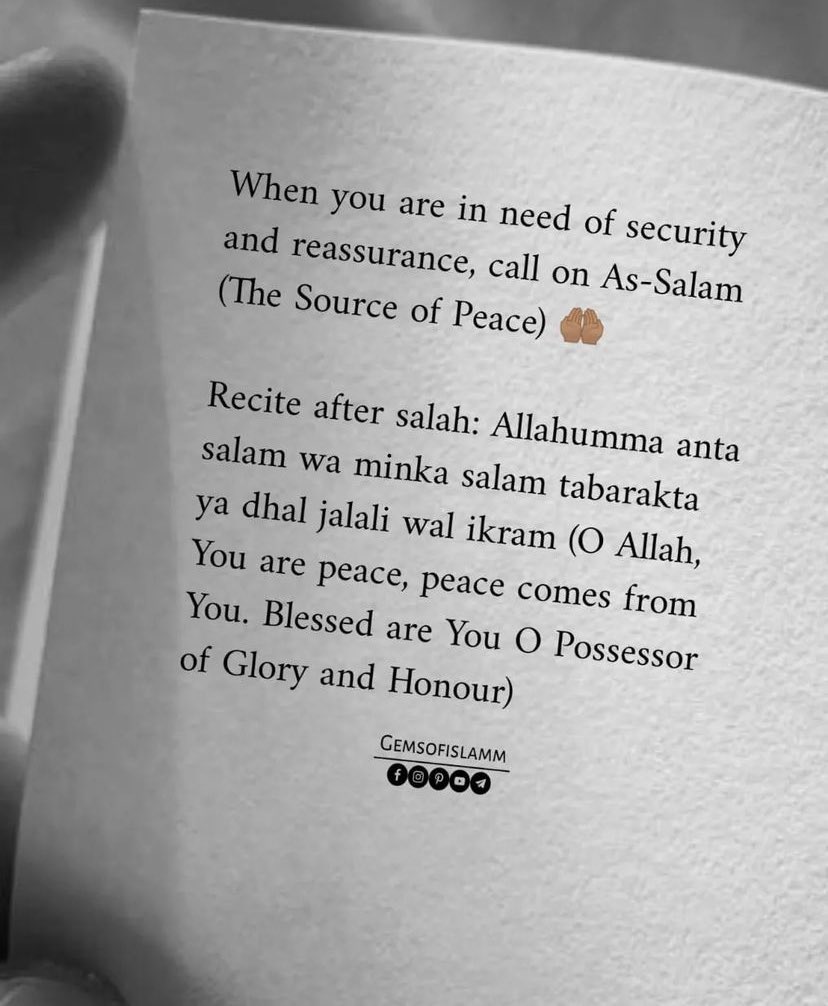 When you are in need of security
and reassurance, call on As-Salam
(The Source of Peace) 🤲🏽
Recite after salah: Allahumma anta
salam wa minka salam tabarakta
ya dhal jalali wal ikram (O Allah,
You are peace, peace comes from
You. Blessed are You O Possessor
of Glory and Honour)
GEMSOFISLAMM